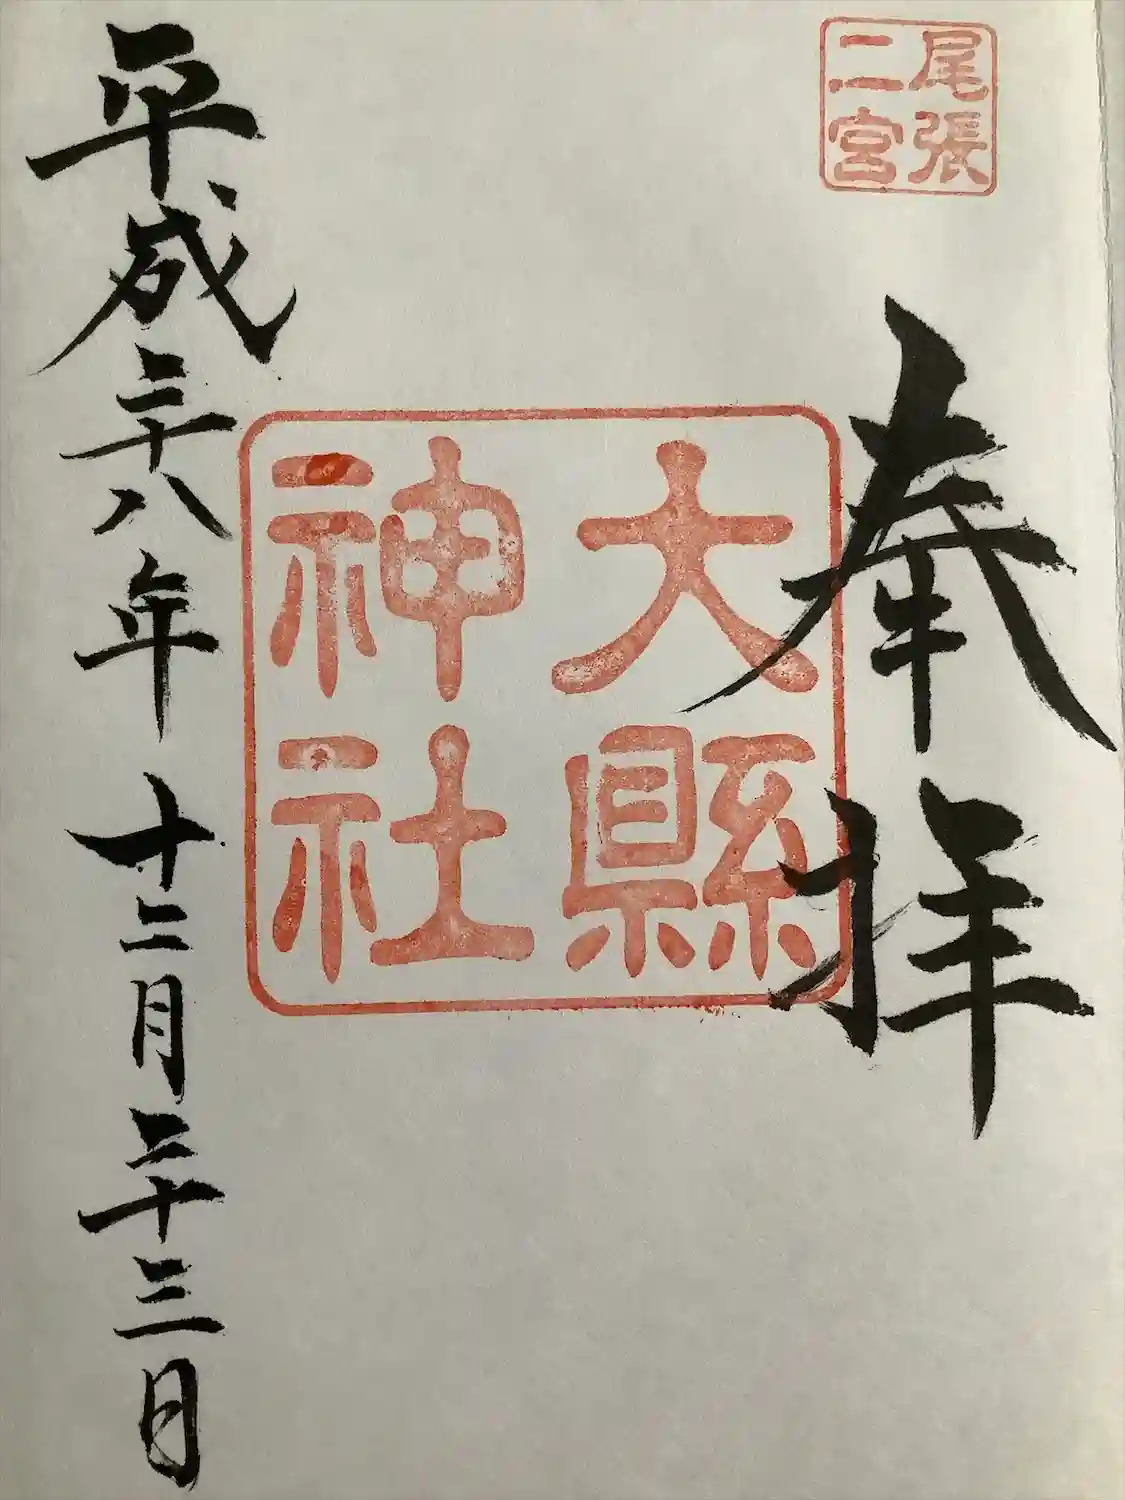 尾張
二宮
奉拝
大縣
神社
平成二十八年十二月二十三日